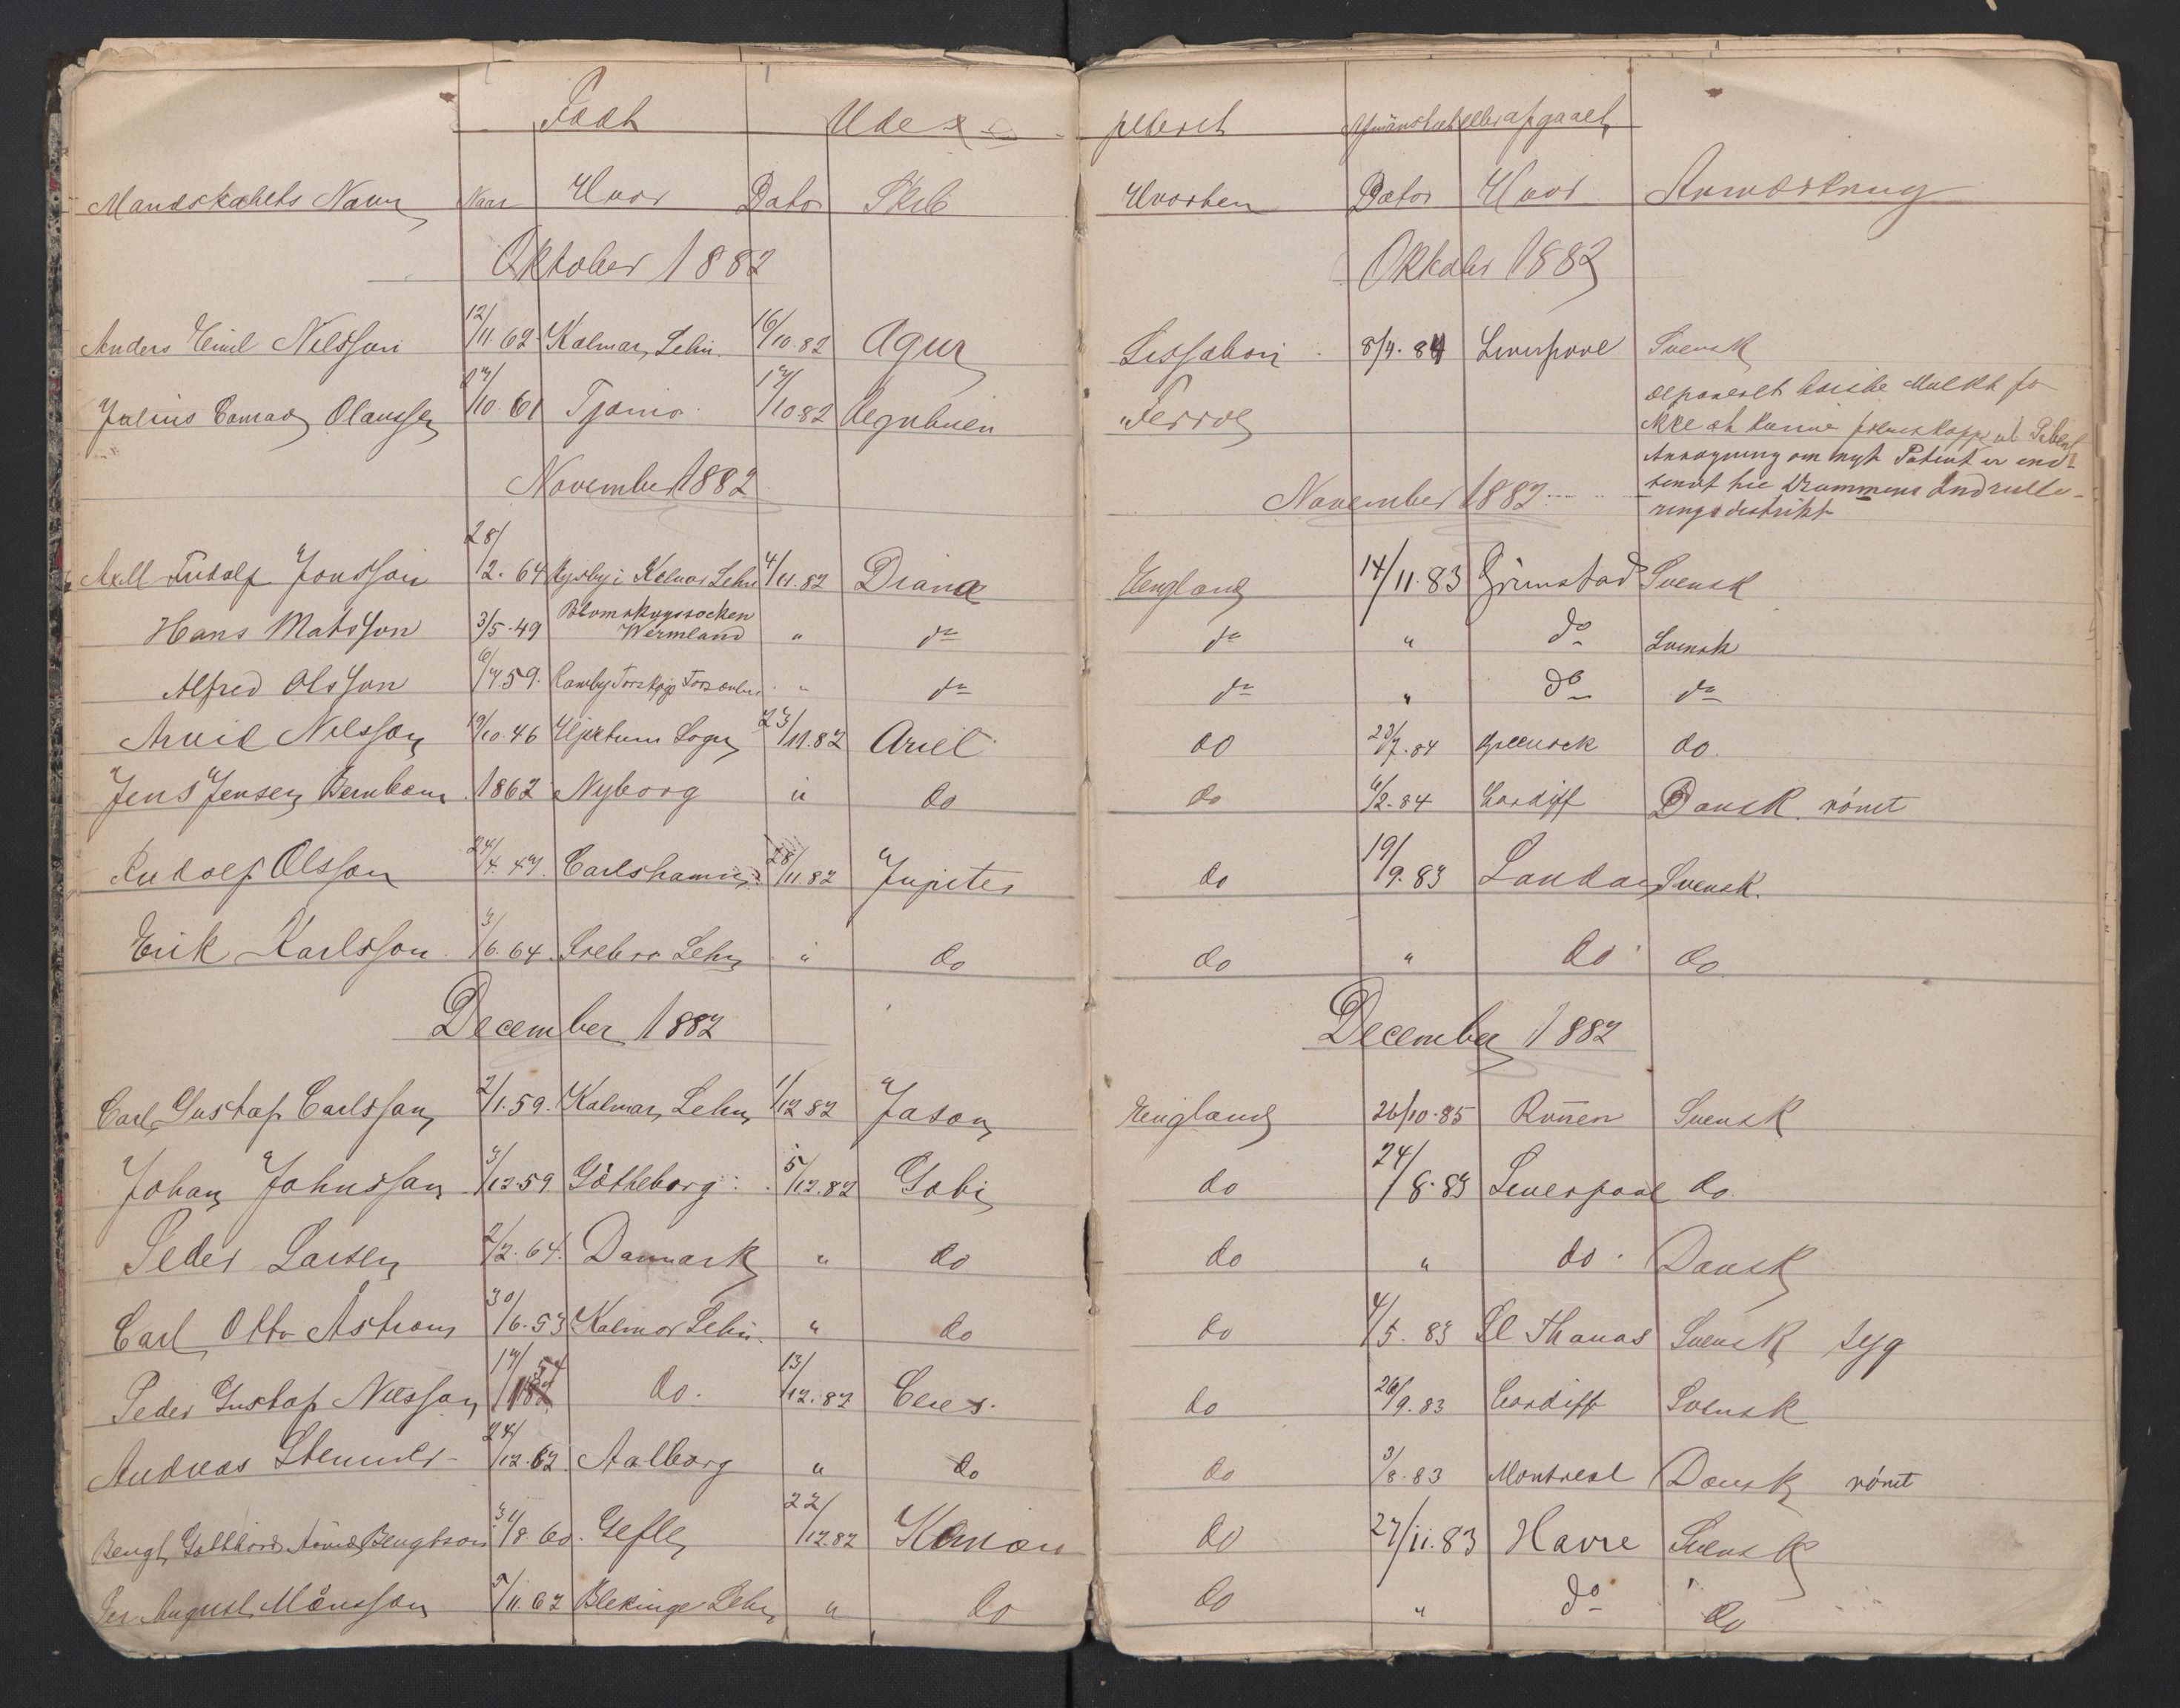 Født Udex
Mandskabets Navn Naar Hvor Dato Skib
Oktober 1882
Anders Emil Nilsson 12/11.62 Kalmar Lehn 16/10.82 Agur
Julius Conrad Olaussen 27/10.61 Tjømø 17/10.82
November 1882
Axel Rudolf Jonsson 28/2.64 i Kalmar Lehn 4/11.82 Diana
Hans Matsson 3/5.49 Blomskogssocken Wermland " do
Alfred Olsson 6/7.59. Torskogs " do
Arvid Nilsson 19/10.46 Hjertum Sogn 23/11.82 Ariel
Jens Jensen 1862 Nyborg " do
Rudolf Olsson 24/4.47. Carlshamn 28/11.82 Jupiter
Erik Karlsson 3/6.64. Örebro Lehn " do
December 1882
Carl Gustaf Carlsson 2/1.59. Kalmar Lehn 1/12 82 Jason
Johan Johnsson 3/12.59. Götheborg 5/12.82 Gobi
Peder Larsen 2/2.64. Danmark " do
Carl Otto Åstrom 30/6.53 Kalmar Lehn " do
Peder Gustaf Nilsson 17/1 54 do. 13/12.82 Ceres
Andreas 24/12.62. Aalborg " do
Bengt Gotthard Bengtson 31/8.60. Gefle 22/12.82
Per August Månsson 5/11.62 Blekinge Lehn " do
pederet Afmønstret eller afgaaet
Hvorhen Dato Hvor Anmærkning
Oktober 1882
Lissabon 8/4.84 Liverpool Svensk
Ferrol deponeret Mulkt for
ikke at kunne fremskaffe sit Patent
Ansøgning om nyt Patent er ind-
sendt til Drammens Indrulle-
ringsdistrikt
November 1882
England 14/11.83 Grimstad Svensk
do " do Svensk
do " do do
do 23/7.84 Greenock do.
do 6/2.84 Cardiff Dansk. rømt
do 19/9.83 London Svensk.
do " do do
December 1882
England 26/10.85 Rouen Svensk
do 24/8.83 Liverpool do.
do " do. Dansk
do 4/5.83 St Thomas Svensk syg
do 26/9.83 Cardiff Svensk
do 3/8.83 Montreal Dansk rømt
do 27/11.83 Havre Svensk
do " do do